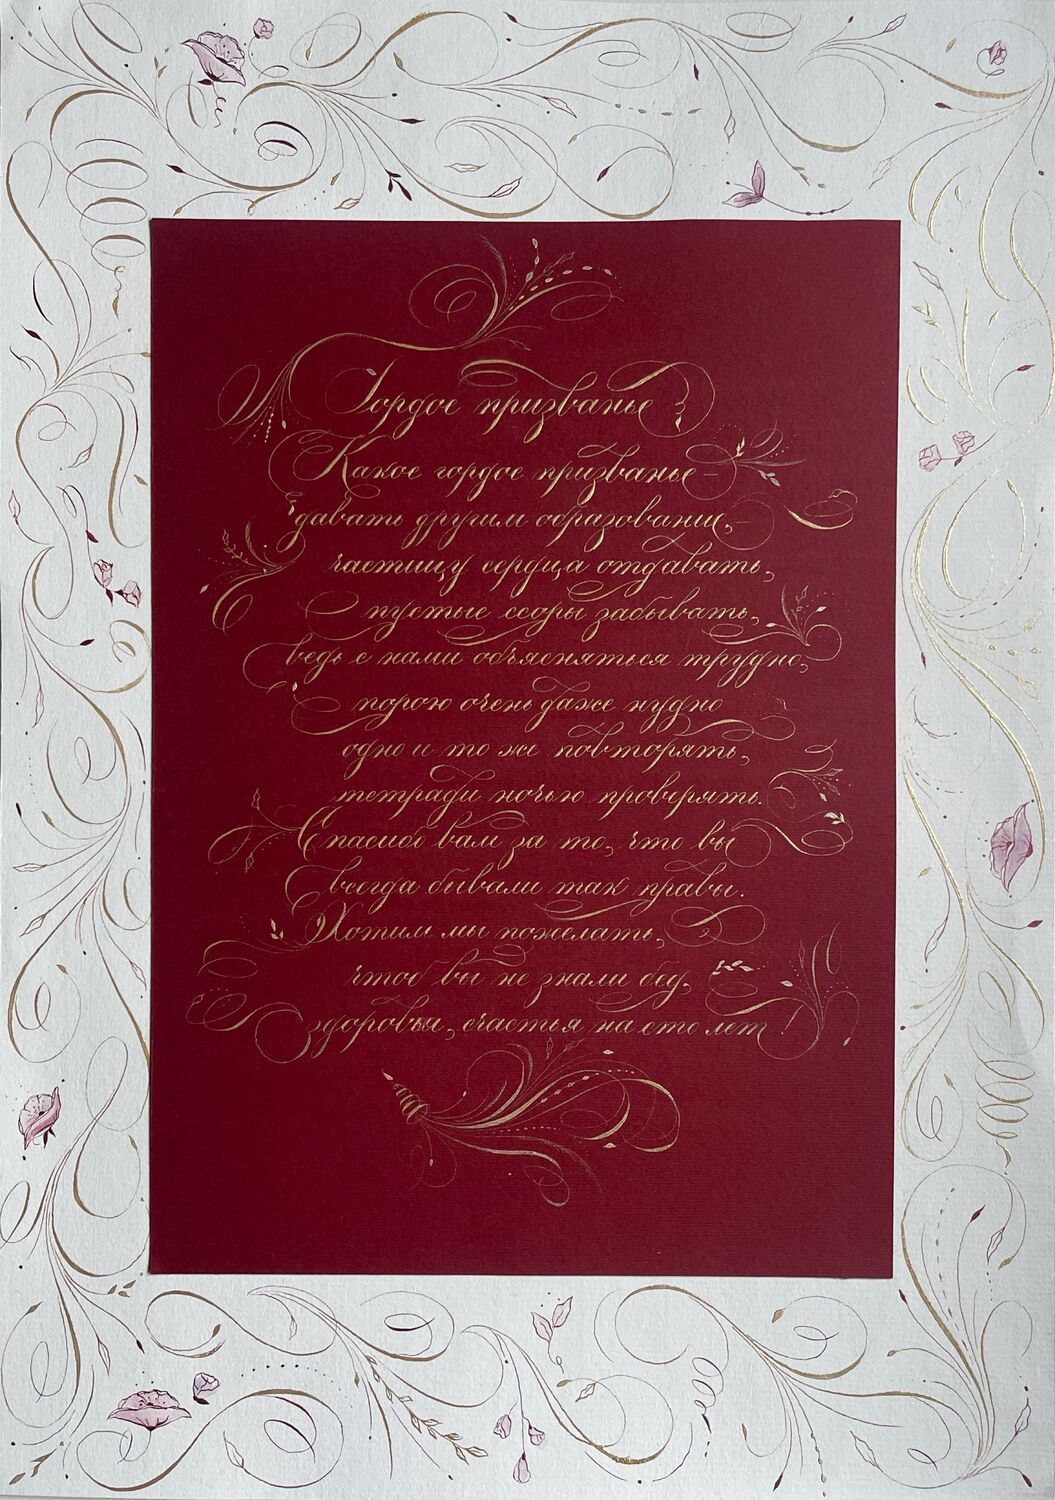 Гордое призванье
Какое гордое призванье –
давать другим образование, –
частицу сердца отдавать,
пустые ссоры забывать,
ведь с нами объясняться трудно,
порою очень даже нудно
одно и то же повторять,
тетради ночью проверять.
Спасибо вам за то, что вы
всегда бывали так правы.
Хотим мы пожелать,
чтоб вы не знали бед,
здоровья, счастья на сто лет!